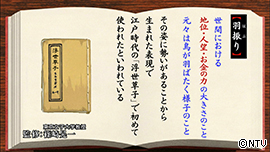 【羽振り】
世間における
地位・人望・お金の力の大きさのこと
元々は鳥が羽ばたく様子のこと
その姿に勢いがあることから
生まれた表現で
江戸時代の「浮世草子」で初めて
使われたといわれている
浮世草子
©NTV